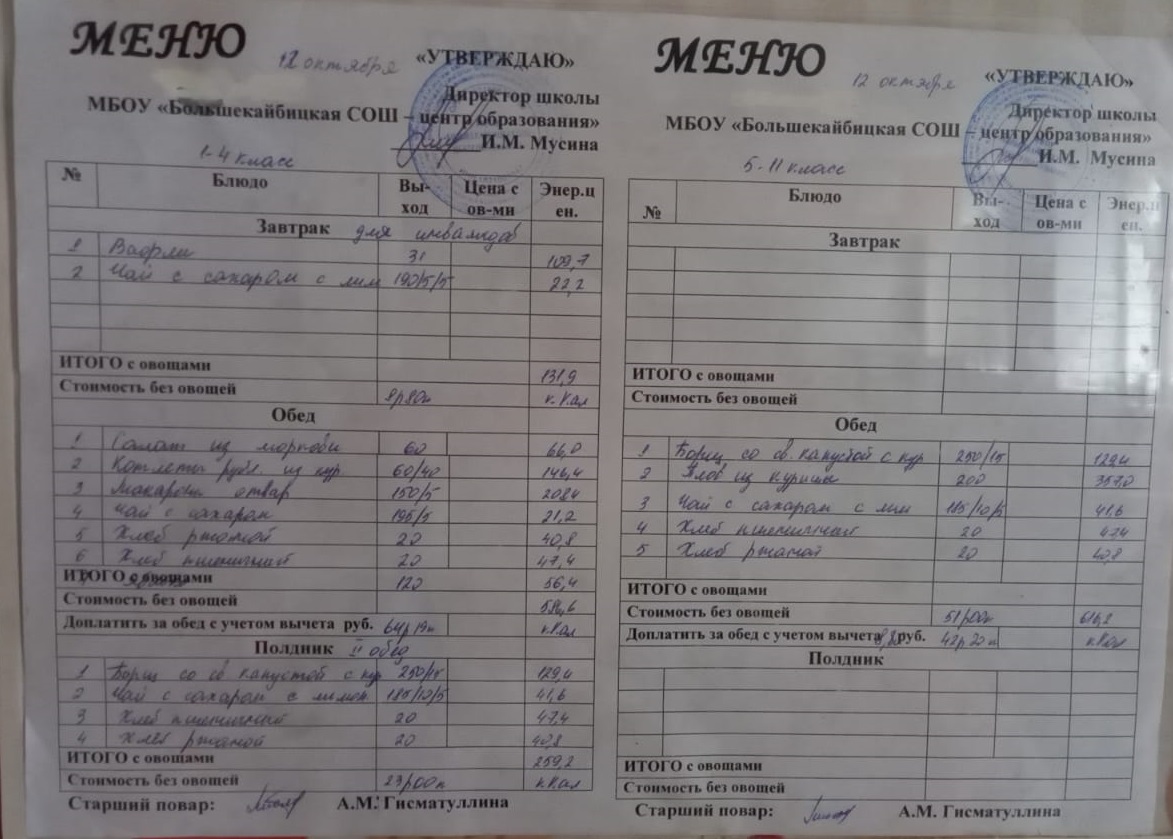 МЕНЮ
12 октября
«УТВЕРЖДАЮ»
Директор школы
МБОУ «Большекайбицкая СОШ – центр образования»
И.М. Мусина
1-4 класс
№ Блюдо Вы-ход Цена с ов-ми Энер.цен.
Завтрак для инвалидов
1 Вафли 31 109,7
2 Чай с сахаром с лим 190/5/5 22,2
ИТОГО с овощами 131,9
Стоимость без овощей 8р80к к.Кал
Обед
1 Салат из моркови 60 66,0
2 Котлеты рубл. из кур 60/40 146,4
3 Макароны отвар 150/5 208,4
4 Чай с сахаром 195/5 21,2
5 Хлеб ржаной 20 40,8
6 Хлеб пшеничный 20 47,4
ИТОГО с овощами 120 56,4
Стоимость без овощей 586,6
Доплатить за обед с учетом вычета руб. 64р19к кКал
Полдник II обед
1 Борщ со св капустой с кур 250/15 129,4
2 Чай с сахаром с лимон 185/10/5 41,6
3 Хлеб пшеничный 20 47,4
4 Хлеб ржаной 20 40,8
ИТОГО с овощами 259,2
Стоимость без овощей 23р00к кКал
Старший повар: А.М. Гисматуллина
МЕНЮ
12 октября
«УТВЕРЖДАЮ»
Директор школы
МБОУ «Большекайбицкая СОШ – центр образования»
И.М. Мусина
5-11 класс
№ Блюдо Вы-ход Цена с ов-ми Энер.цен.
Завтрак
ИТОГО с овощами
Стоимость без овощей
Обед
1 Борщ со св. капустой с кур 250/15 129,4
2 Плов из курицы 200 357,0
3 Чай с сахаром с лим 185/10/5 41,6
4 Хлеб пшеничный 20 47,4
5 Хлеб ржаной 20 40,8
ИТОГО с овощами
Стоимость без овощей 51р00к 616,2
Доплатить за обед с учетом вычета руб. 42р20к кКал
Полдник
ИТОГО с овощами
Стоимость без овощей
Старший повар: А.М. Гисматуллина